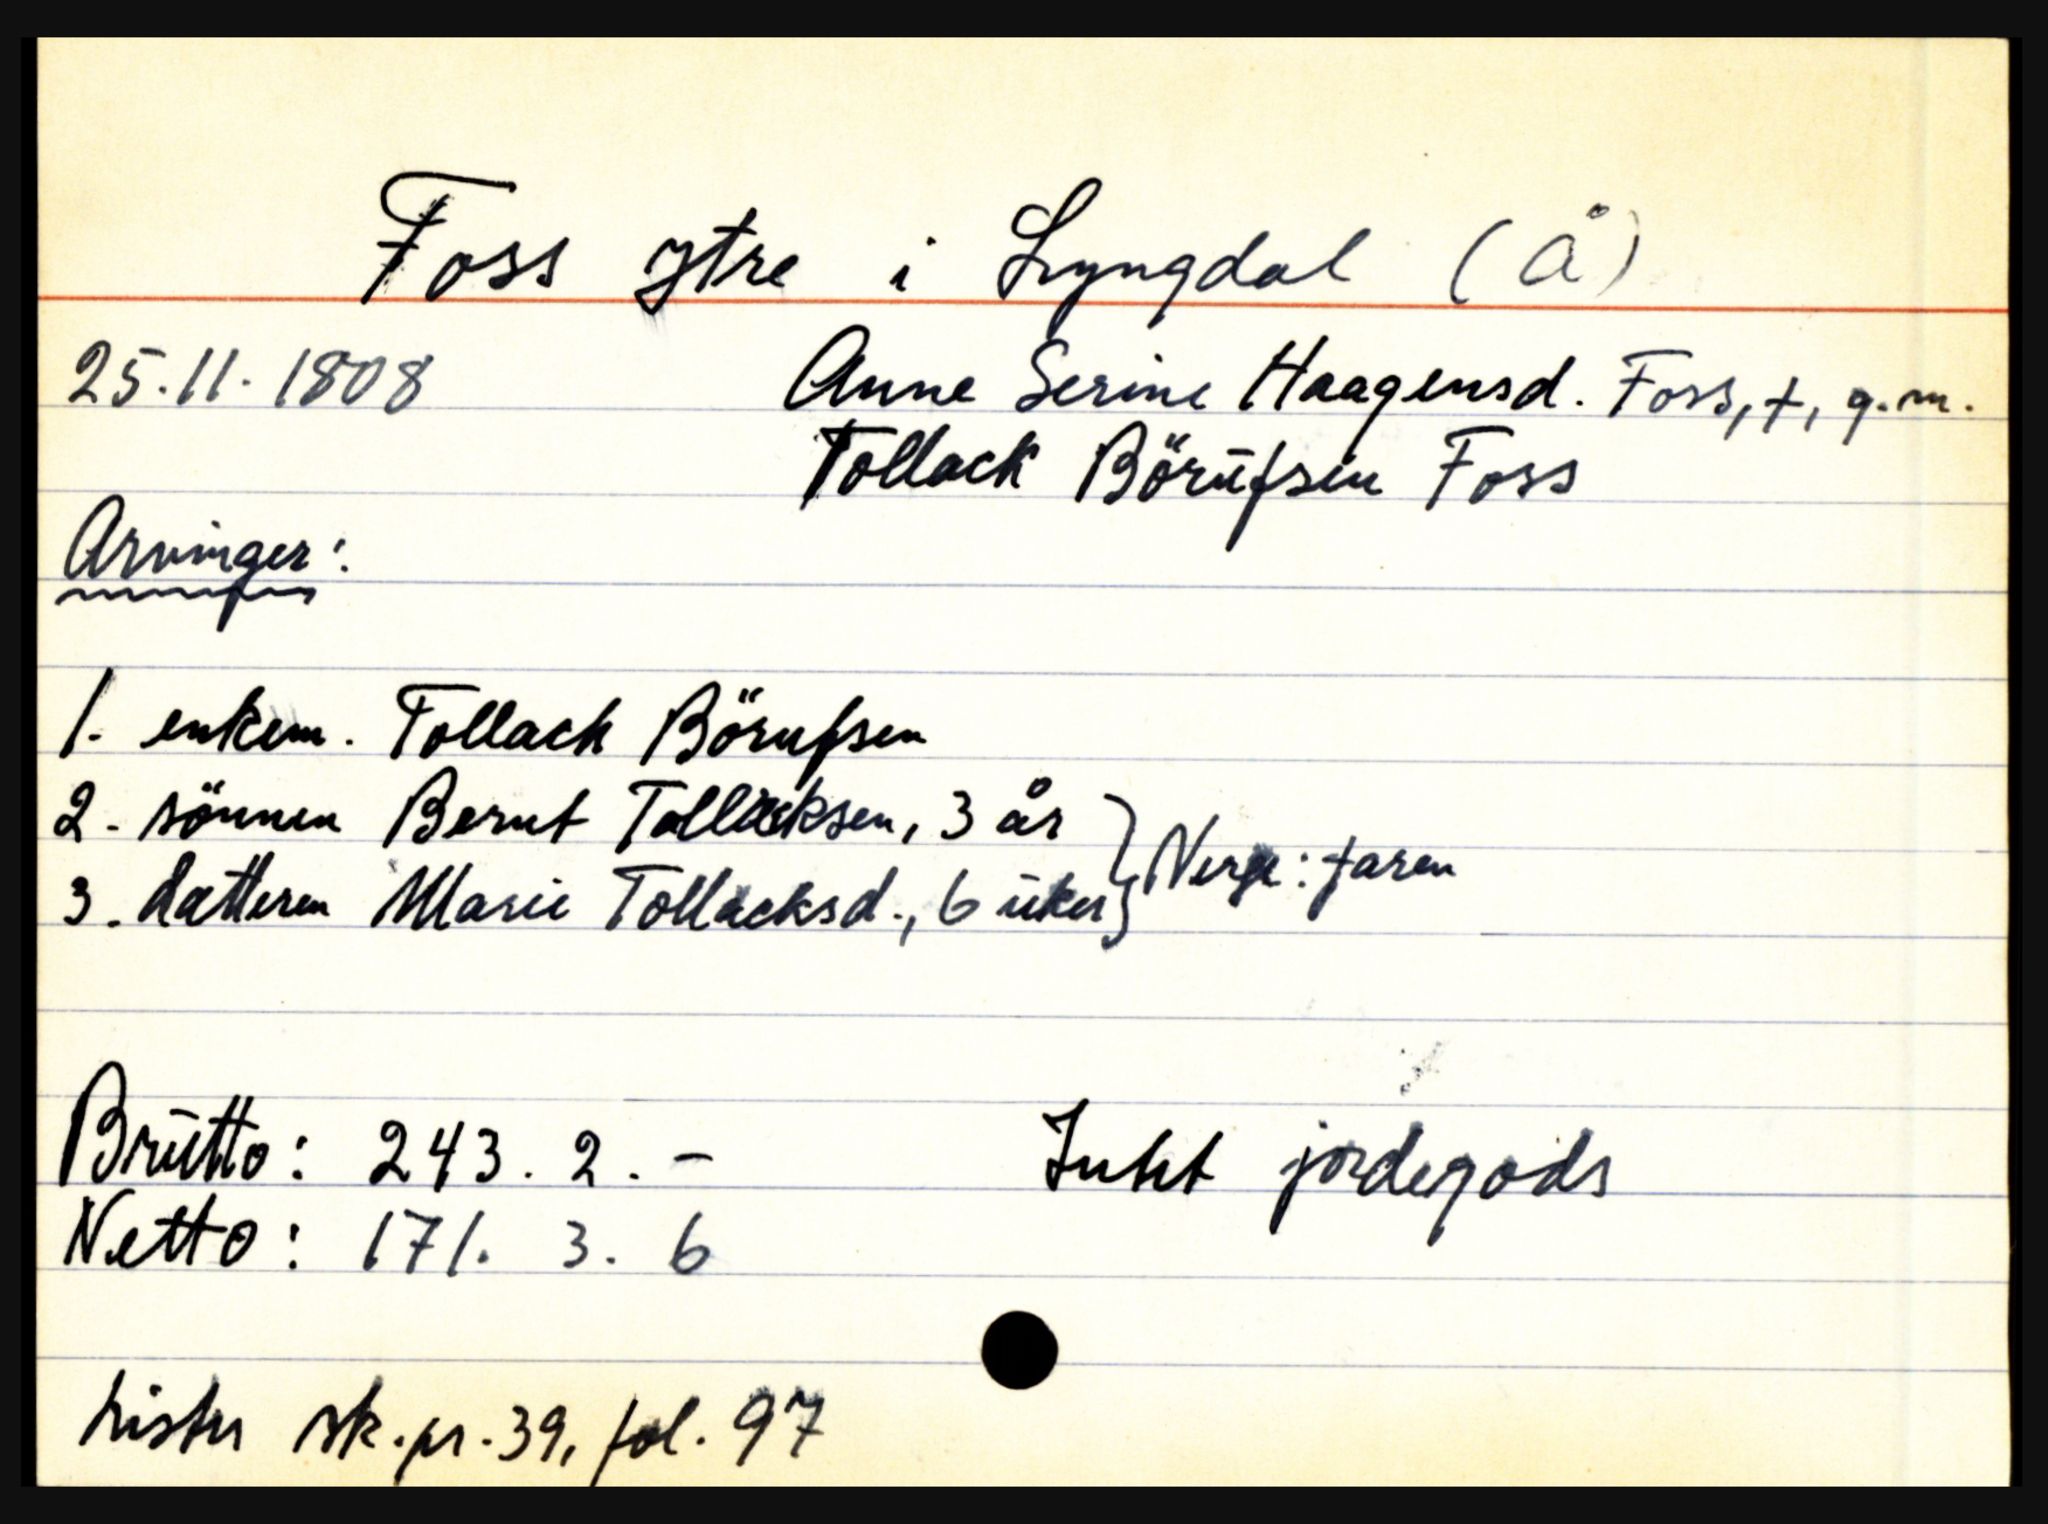 Foss ytre i Lyngdal (Å)
25.11.1808 Anne Serine Haagensd. Foss, †, g.m.
Tollack Börufsen Foss
Arvinger:
1. enkem. Tollack Börufsen
2. sönnen Bernt Tollacksen, 3 år
3. datteren Marie Tollacksd., 6 uker } Verge: faren
Brutto: 243. 2. - Intet jordegods
Netto: 171. 3. 6
Lister sk.pr. 39, fol. 97